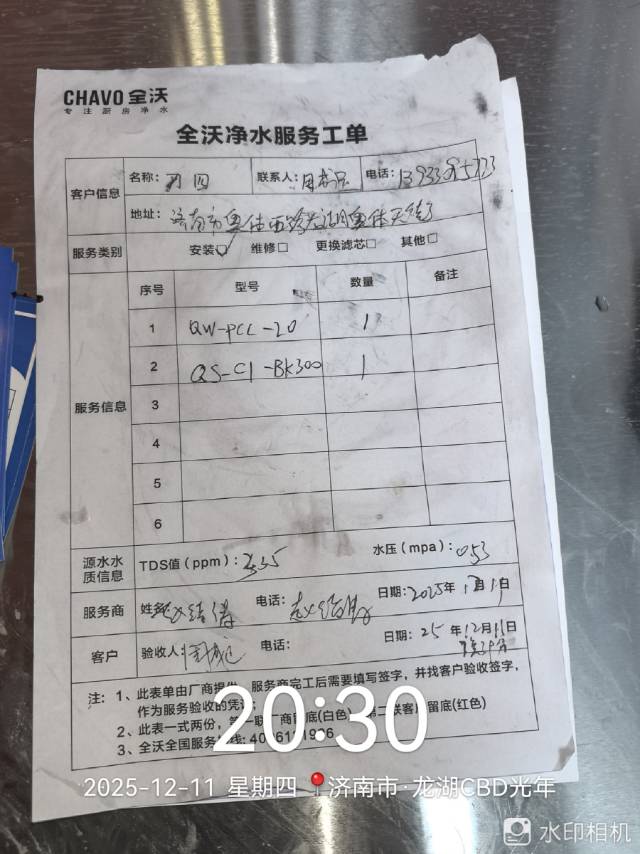 CHAVO 全沃
专注厨房净水
全沃净水服务工单
客户信息
名称： 联系人： 电话：
地址：济南市奥体西路龙湖奥体天街
服务类别 安装☑ 维修□ 更换滤芯□ 其他□
服务信息
序号 型号 数量 备注
1 QW-PCC-20 1
2 QS-C1-BK300 1
3
4
5
6
源水水质信息
TDS值（ppm）：335 水压（mpa）：053
服务商 姓名 电话： 日期：2025年 月11日
客户 验收人： 电话： 日期：25年12月11日
注：1、此表单由厂商提供，服务商完工后需要填写签字，并找客户验收签字，
作为服务验收的凭证；
2、此表一式两份，第一联厂商留底(白色) 第二联客户留底(红色)
3、全沃全国服务热线：
20:30
2025-12-11 星期四 济南市·龙湖CBD光年
水印相机